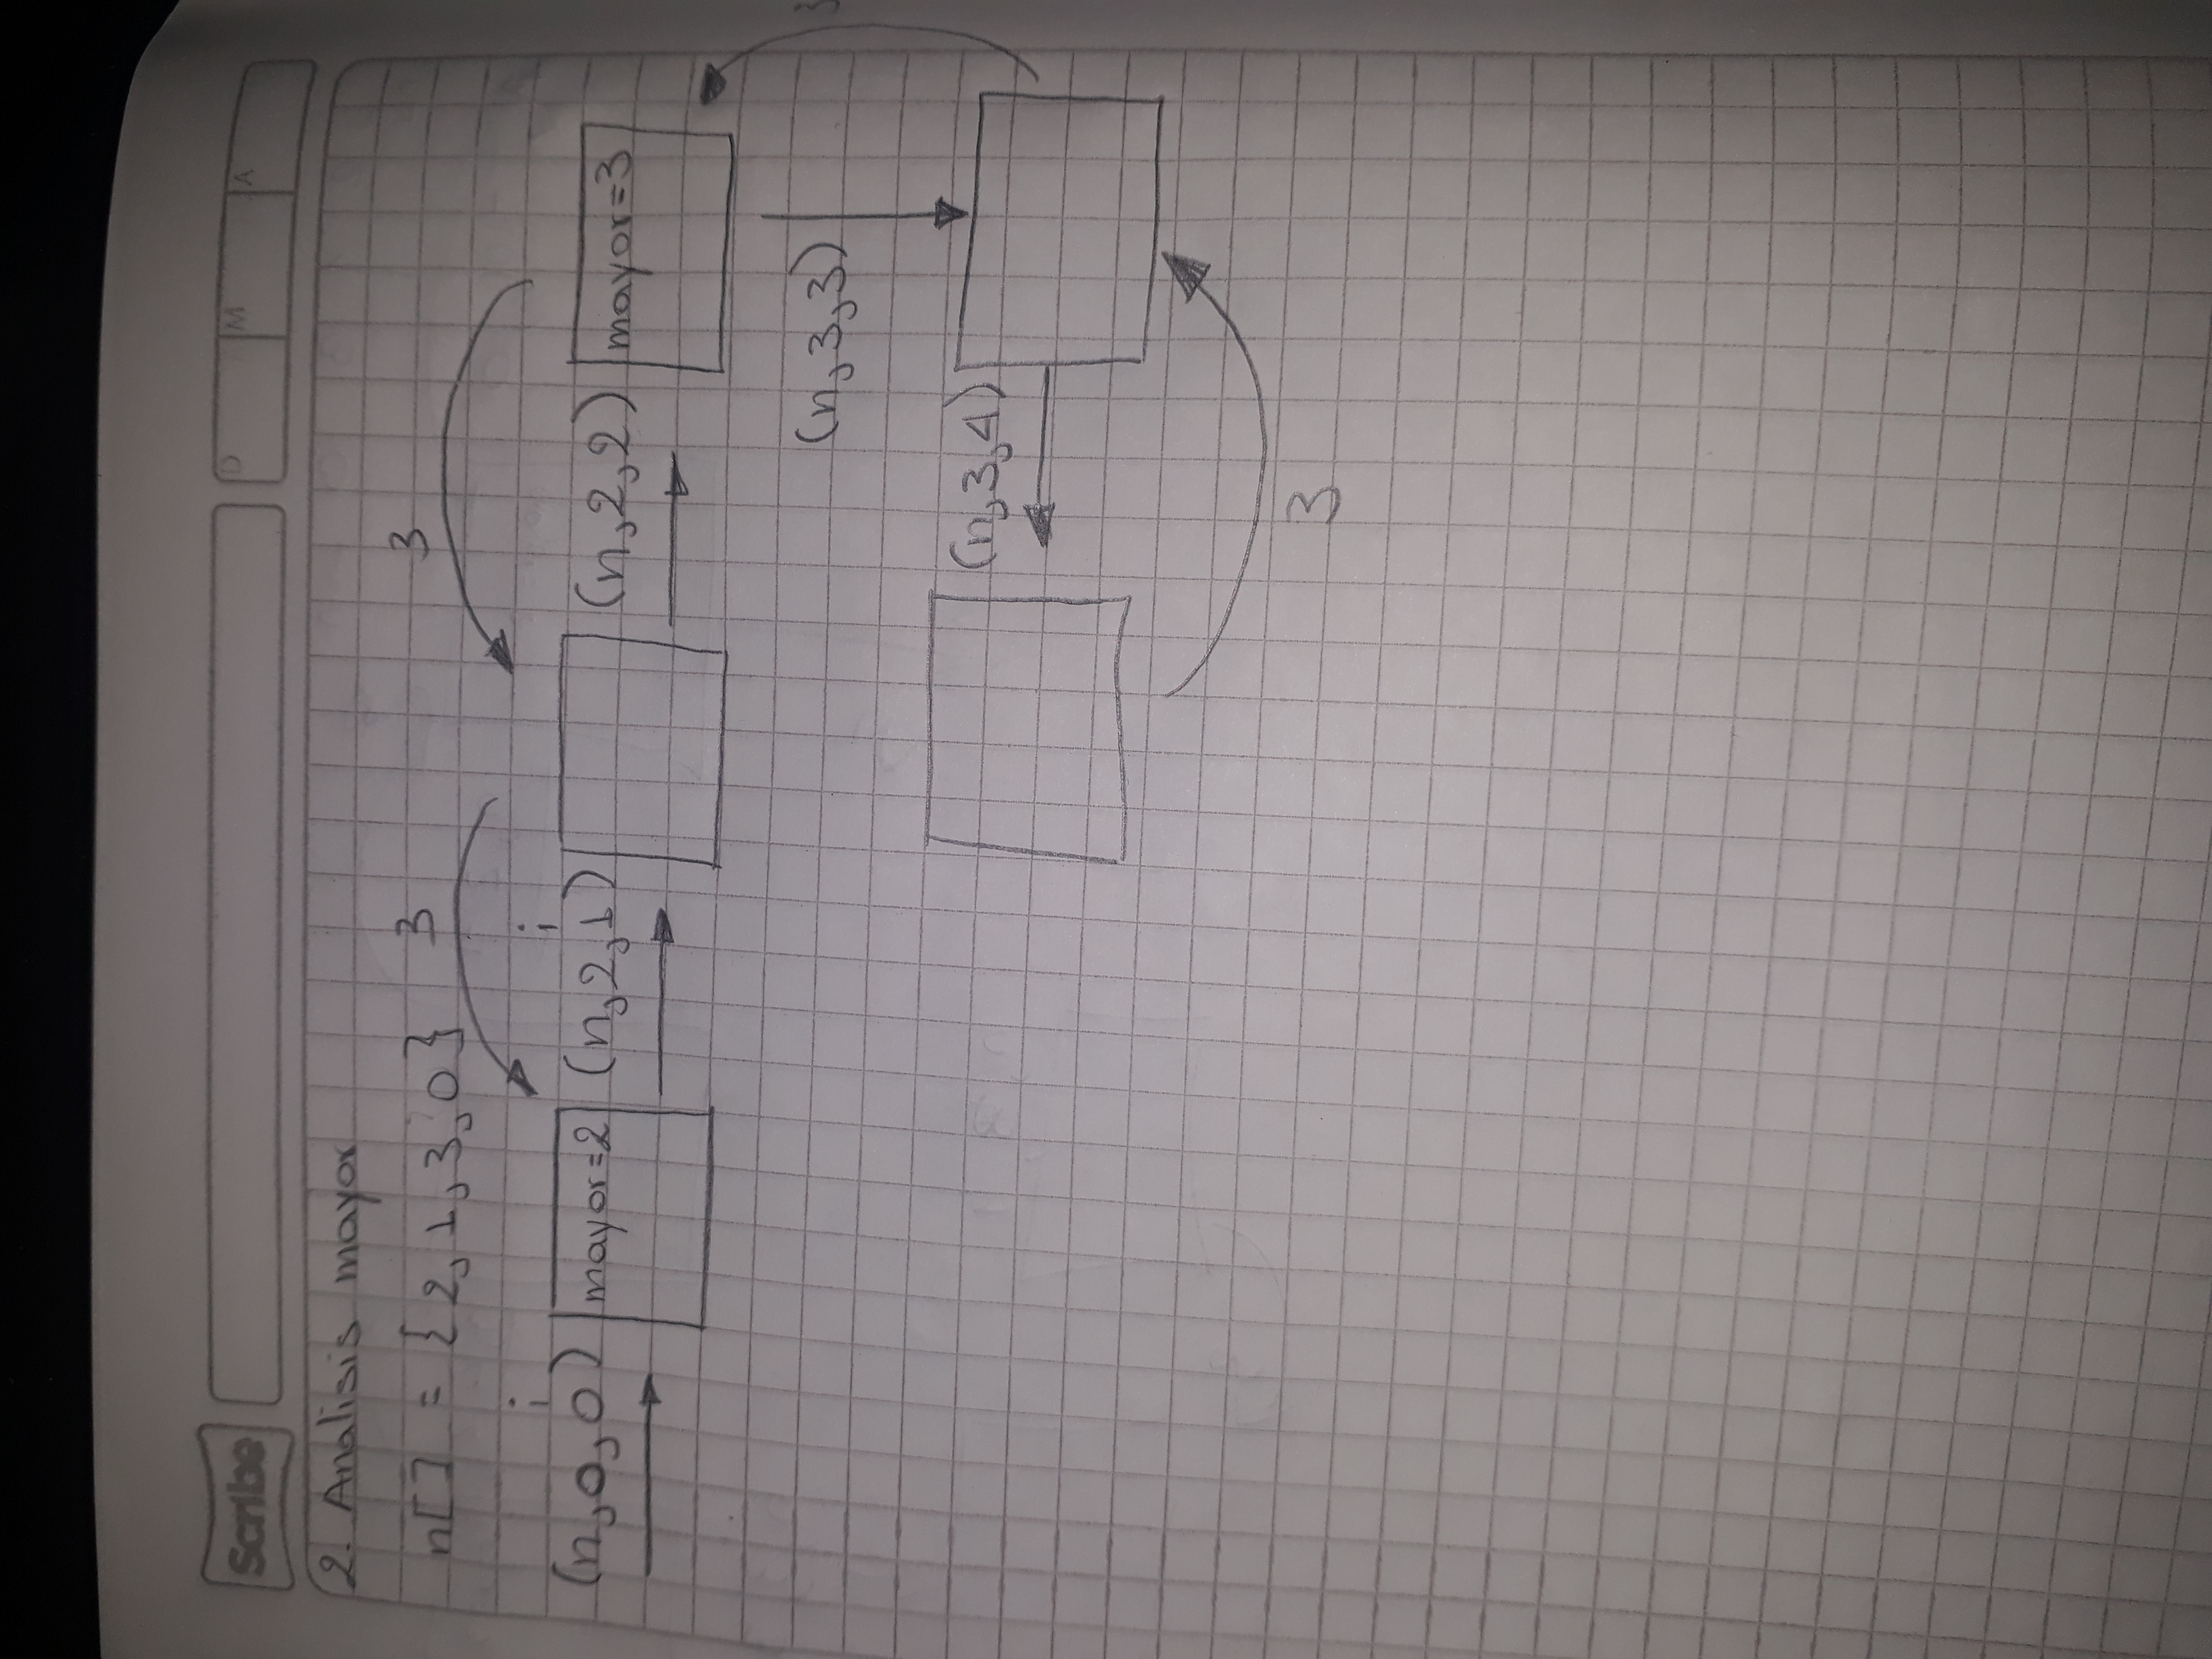 Scribe
D M A
2. Analisis mayor
n[] = {2,1,3,0}
3
3
i
i
(n,0,0) mayor=2 (n,2,1) (n,2,2) mayor=3
(n,3,3)
(n,3,4)
3